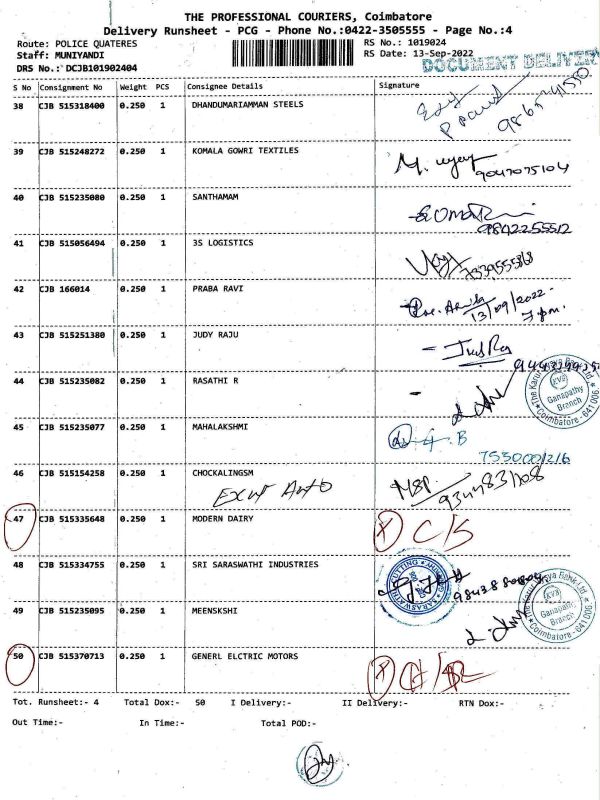 THE PROFESSIONAL COURIERS, Coimbatore
Delivery Runsheet - PCG - Phone No.:0422-3505555 - Page No.:4
Route: POLICE QUATERES
RS No.: 1019024
Staff: MUNIYANDI
RS Date: 13-Sep-2022
DRS No.: DCJB101902404
DOCUMENT DELIVERY
S No Consignment No Weight PCS Consignee Details Signature
38 CJB 515318400 0.250 1 DHANDUMARIAMMAN STEELS
39 CJB 515248272 0.250 1 KOMALA GOWRI TEXTILES
9047075104
40 CJB 515235080 0.250 1 SANTHAMAM
9842255512
41 CJB 515056494 0.250 1 3S LOGISTICS
42 CJB 166014 0.250 1 PRABA RAVI
13/09/2022-
7 pm.
43 CJB 515251380 0.250 1 JUDY RAJU
44 CJB 515235082 0.250 1 RASATHI R
The Karur Vysya Bank Ltd
KVB
Ganapathy
Branch
Coimbatore - 641 006
45 CJB 515235077 0.250 1 MAHALAKSHMI
46 CJB 515154258 0.250 1 CHOCKALINGSM
MSP
47 CJB 515335648 0.250 1 MODERN DAIRY
C/S
48 CJB 515334755 0.250 1 SRI SARASWATHI INDUSTRIES
The Karur Vysya Bank Ltd
KVB
Ganapathy
Branch
Coimbatore - 641 006
49 CJB 515235095 0.250 1 MEENSKSHI
50 CJB 515370713 0.250 1 GENERL ELCTRIC MOTORS
Tot. Runsheet:- 4 Total Dox:- 50 I Delivery:- II Delivery:- RTN Dox:-
Out Time:- In Time:- Total POD:-